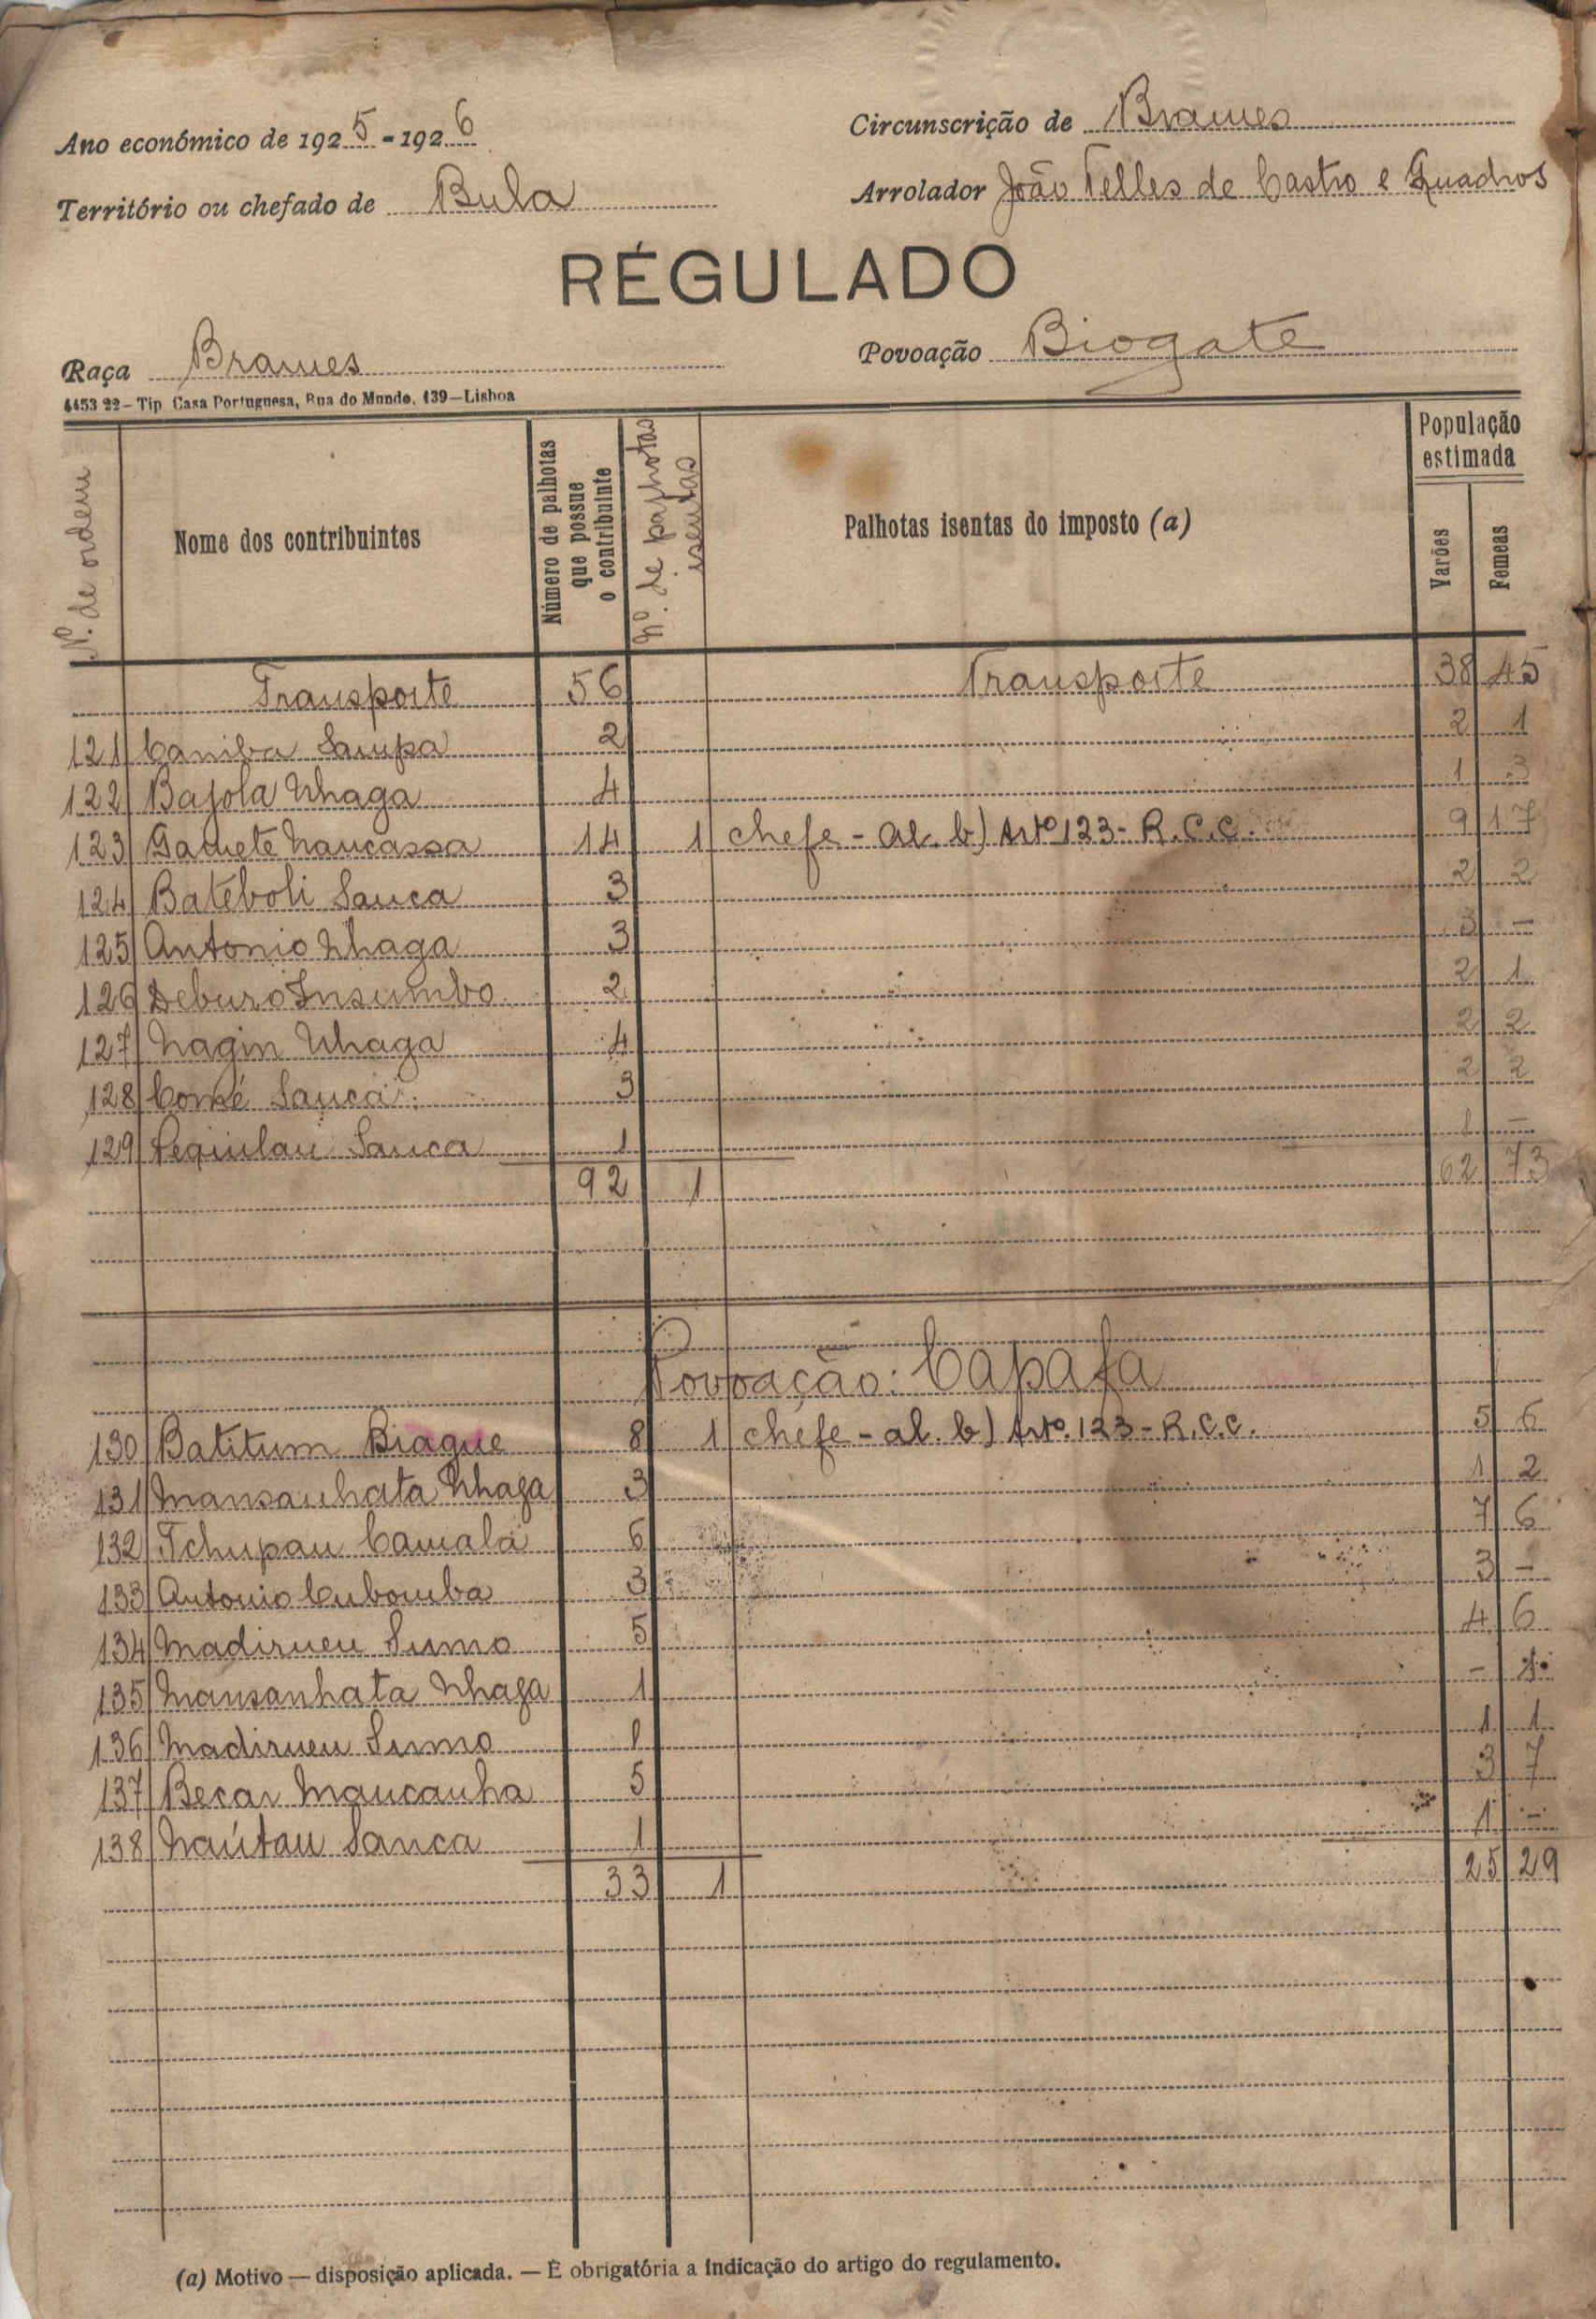 Ano económico de 1925-1926
Circunscrição de Brames
Território ou chefado de Bula
Arrolador João Telles de Castro e Quadros
RÉGULADO
Raça Brames
Povoação Biogate
4453 22 – Tip Casa Portuguesa, Rua do Mundo, 139 — Lisboa
Nº. de ordem
Nome dos contribuintes
Número de palhotas que possue o contribuinte
Nº. de palhotas isentas
Palhotas isentas do imposto (a)
População estimada
Varões
Femeas
Transporte 56 Transporte 38 45
121 Caniba Sampa 2 2 1
122 Bajola Nhaga 4 1 3
123 Gamete Nancassa 14 1 chefe - al. b) Artº 123 - R.C.C. 9 17
124 Bateboli Sanca 3 2 2
125 Antonio Nhaga 3 3 –
126 Deburo Insumbo 2 2 1
127 Nagin Nhaga 4 2 2
128 Comé Sanca 3 2 2
129 Pequilau Sanca 1 1 –
92 1 62 73
Povoação: Capafa
130 Batitum Biague 8 1 chefe - al. b) Artº. 123 - R.C.C. 5 6
131 Mansanhata Nhaga 3 1 2
132 Tchupau Camala 6 7 6
133 Antonio Cubomba 3 3 –
134 Madirneu Sumo 5 4 6
135 Mansanhata Nhaga 1 – 1
136 Madirneu Sumo 1 1 1
137 Becar Mancanha 5 3 7
138 Naútau Sanca 1 1 –
33 1 25 29
(a) Motivo — disposição aplicada. — É obrigatória a indicação do artigo do regulamento.